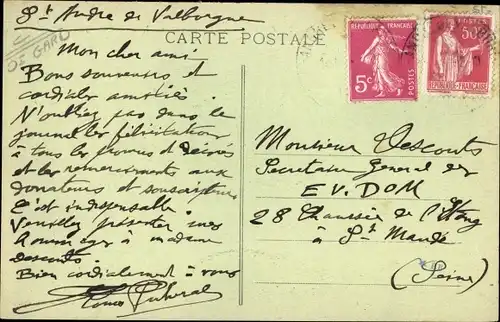 St Andre de Valborgne
DE GARD
CARTE POSTALE
RÉPUBLIQUE FRANÇAISE
5c
POSTES
50c
REPUBLIQUE FRANÇAISE
Mon cher ami
Bons souvenirs et
cordiales amitiés.
N'oubliez pas dans le
journal les félicitations
à tous les promus et décorés
et les remerciements aux
donateurs et souscripteurs
C'est indispensable.
Veuillez présenter mes
hommages à madame
Descouts.
Bien cordialement à vous
Monsieur Descouts
Secretaire General des
E.V. DOM
28 Chaussée de l'Etang
à St Mandé
(Seine)